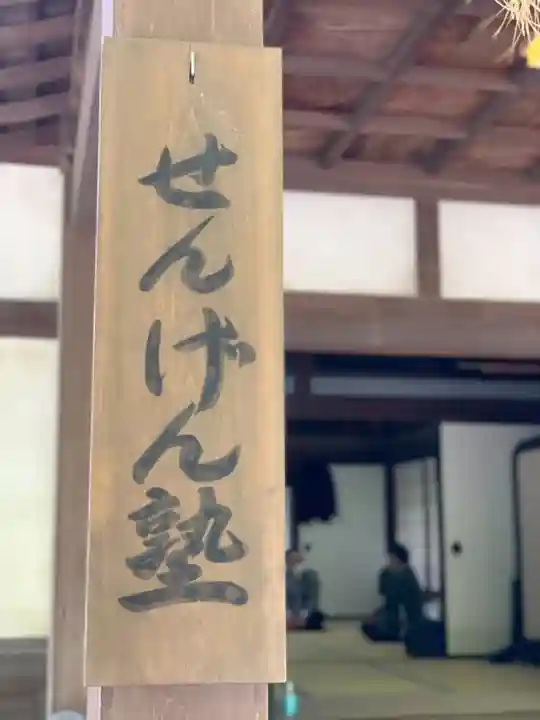 せんげん塾